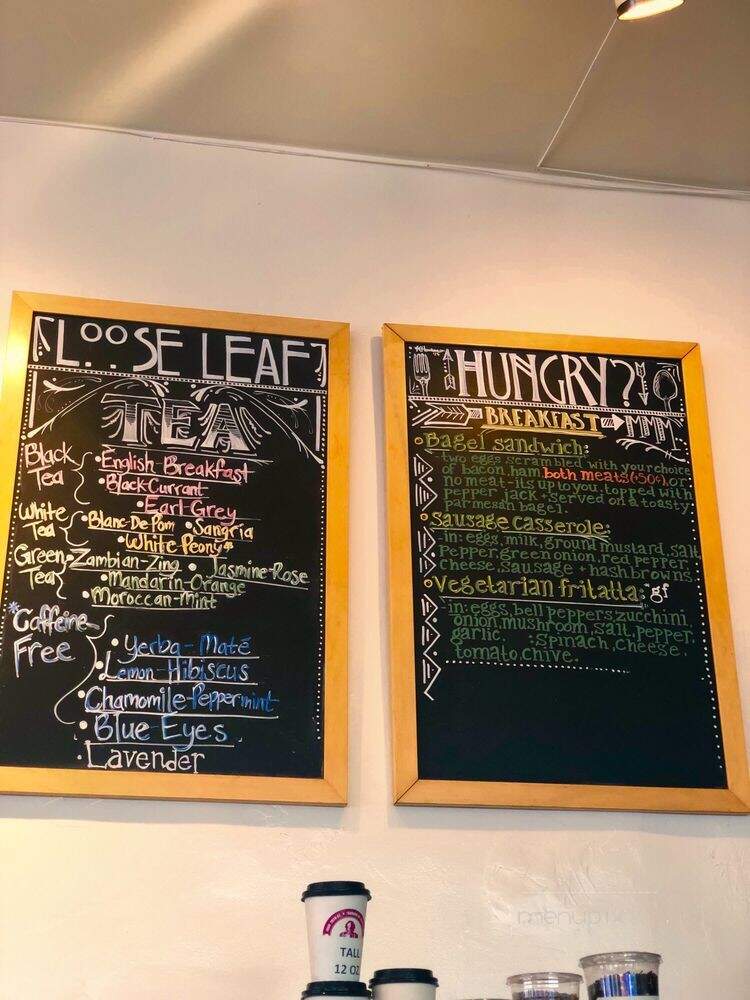 LOOSE LEAF
TEA
Black Tea
•English Breakfast
•Black-Currant
•Earl-Grey
White Tea
•Blanc-De-Pom •Sangria
•White Peony*
Green Tea
•Zambian-Zing •Jasmine-Rose
•Mandarin-Orange
•Moroccan-Mint
*Caffeine-Free
•Yerba-Maté
•Lemon-Hibiscus
•Chamomile-Peppermint
•Blue Eyes
•Lavender
HUNGRY?
BREAKFAST MMM
Bagel sandwich:
-two eggs scrambled with your choice
of bacon, ham, both meats(+50¢), or
no meat-its up to you, topped with
pepper jack + served on a toasty
parmesan bagel.
Sausage casserole:
in: eggs, milk, ground mustard, salt
pepper, green onion, red pepper
cheese, sausage + hashbrowns
Vegetarian fritatta: *gf
in: eggs, bell peppers, zucchini,
onion, mushroom, salt, pepper,
garlic. :Spinach, cheese,
tomato, chive.
TALL
12 OZ
menupix